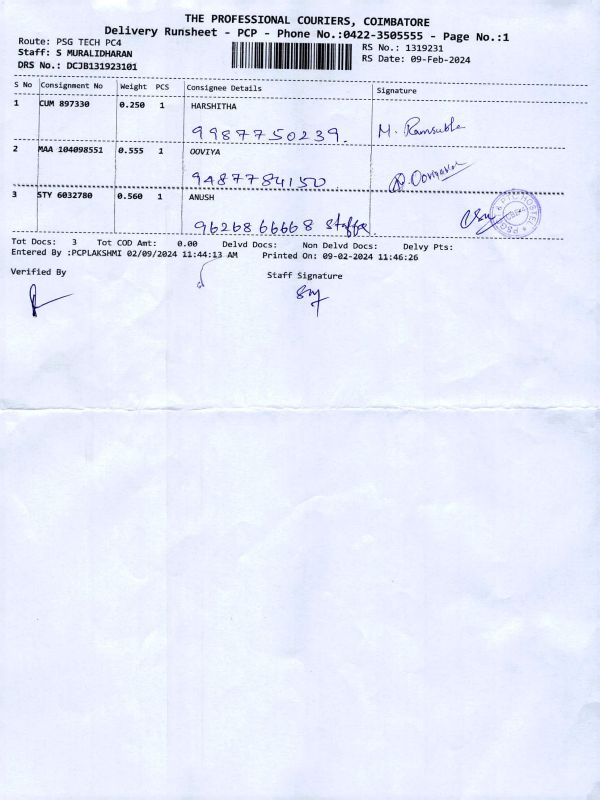 THE PROFESSIONAL COURIERS, COIMBATORE
Delivery Runsheet - PCP - Phone No.:0422-3505555 - Page No.:1
Route: PSG TECH PC4
Staff: S MURALIDHARAN
DRS No.: DCJB131923101
RS No.: 1319231
RS Date: 09-Feb-2024
S No Consignment No Weight PCS Consignee Details Signature
1 CUM 897330 0.250 1 HARSHITHA
9987750239. M. Ramsubha
2 MAA 104098551 0.555 1 OOVIYA
9487784150
3 STY 6032780 0.560 1 ANUSH
9626866668 Staffa
Tot Docs: 3 Tot COD Amt: 0.00 Delvd Docs: Non Delvd Docs: Delvy Pts:
Entered By :PCPLAKSHMI 02/09/2024 11:44:13 AM Printed On: 09-02-2024 11:46:26
Verified By
Staff Signature